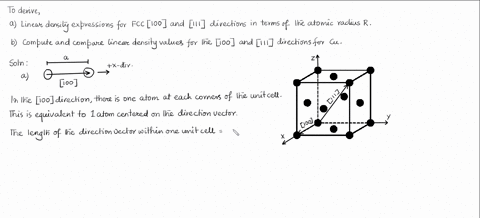 To derive,
a) Linear density expressions for FCC [100] and [111] directions in terms of the atomic radius R.
b) Compute and compare linear density values for the [100] and [111] directions for Cu.
Soln:
a)
a
+x-dir.
[100]
In the [100] direction, there is one atom at each corners of the unit cell.
This is equivalent to 1 atom centered on the direction vector.
The length of the direction vector within one unit cell =
z
[111]
[100]
y
x